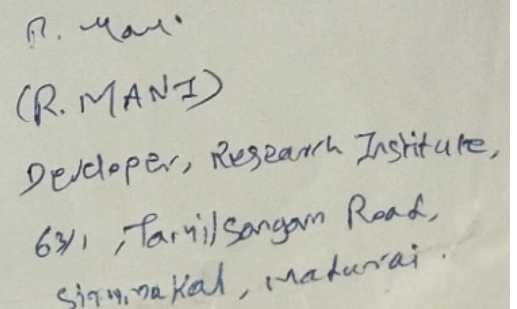 R. Mani
(R. MANI)
Developer, Research Institute,
63/1, Tamil Sangam Road,
Simmakal, Madurai.